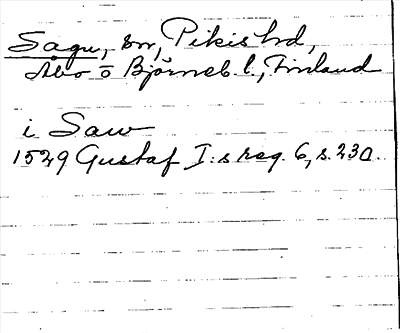 Sagu, sn, Pikis hd,
Åbo o Björneb. l., Finland
i Saw
1529 Gustaf I:s reg. 6, s. 230.